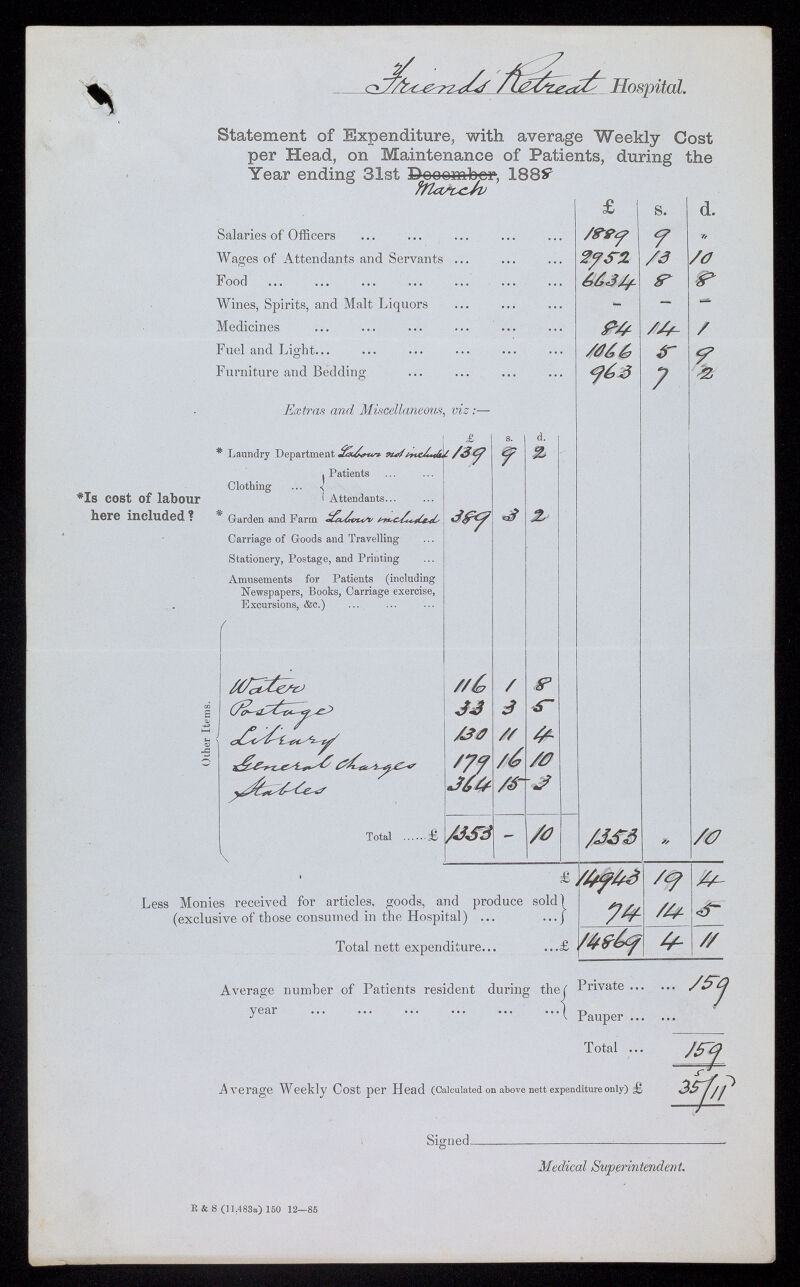 Friends' Retreat Hospital.
Statement of Expenditure, with average Weekly Cost
per Head, on Maintenance of Patients, during the
Year ending 31st December, 1888
March
£ s. d.
Salaries of Officers ... ... ... ... ... 1889 9 "
Wages of Attendants and Servants ... ... ... 2952 13 10
Food ... ... ... ... ... ... ... 6634 8 8
Wines, Spirits, and Malt Liquors ... ... ... – – –
Medicines ... ... ... ... ... ... 84 14 1
Fuel and Light... ... ... ... ... ... 1066 5 9
Furniture and Bedding ... ... ... ... 963 7 2
Extras and Miscellaneous, viz :—
£ s. d.
* Laundry Department Labour not included 139 9 2
Clothing ... { Patients ... ...
Attendants... ...
*Is cost of labour
here included?
* Garden and Farm Labour included 389 3 2
Carriage of Goods and Travelling ...
Stationery, Postage, and Printing ...
Amusements for Patients (including
Newspapers, Books, Carriage exercise,
Excursions, &c.) ... ... ...
Other Items.
Water 116 1 8
Postage 33 3 5
Library 130 11 4
General Charges 179 16 10
Stables 364 15 3
Total ......£ 1353 - 10 1353 " 10
£ 14943 19 4
Less Monies received for articles, goods, and produce sold }
(exclusive of those consumed in the Hospital) ... ... } 74 14 5
Total nett expenditure... ...£ 14869 4 11
Average number of Patients resident during the { Private ... ... 159
year ... ... ... ... ... ... { Pauper ... ...
Total ... 159
Average Weekly Cost per Head (Calculated on above nett expenditure only) £ 35/11
Signed
Medical Superintendent.
R & S (11,483a) 150 12—85